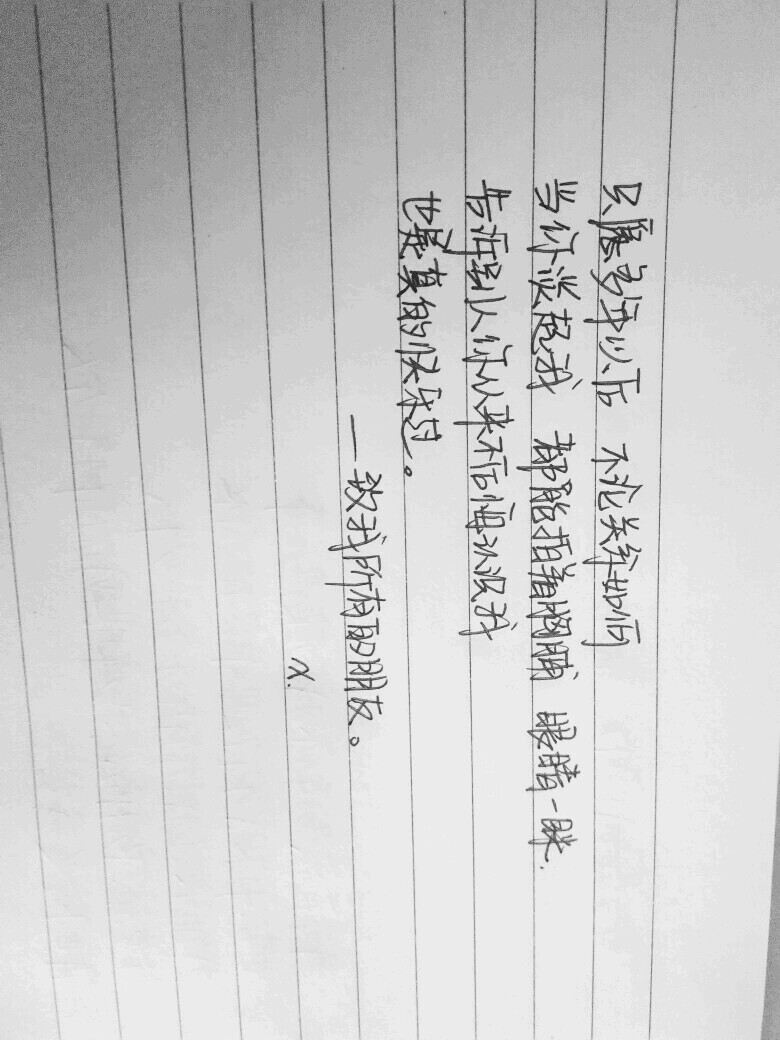 只愿多年以后 不论关系如何
当你谈起我 都能拍着胸脯 眼睛一眯.
告诉别人你从来不后悔认识我
也是真的快乐过。
—致我所有的朋友。
x.